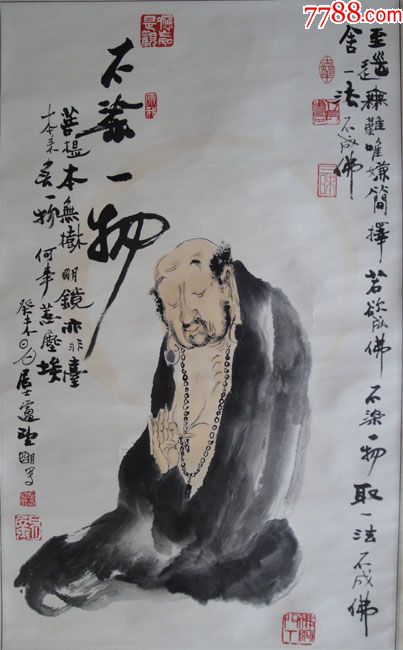 7788.com
至道無難唯嫌簡擇若欲成佛不染一物取一法不成佛
舍一法不成佛
不染一物
菩提本無樹明鏡亦非臺
本來無一物何事惹塵埃
癸未
居士盧
應如是觀